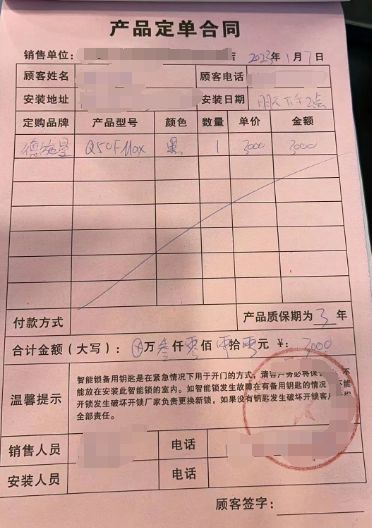 产品定单合同
销售单位： 2023年1月7日
顾客姓名 顾客电话
安装地址 安装日期 明天下午2点
定购品牌 产品型号 颜色 数量 单价 金额
德施曼 Q50FMax 黑 1 3000 3000
付款方式 产品质保期为 3 年
合计金额（大写）：⊕万叁仟零佰零拾零元 ¥：3000
温馨提示
智能锁备用钥匙是在紧急情况下用于开门的方式，请客户务必将
能放在安装此智能锁的室内。如智能锁发生故障在有备用钥匙的情况
开锁发生破坏开锁厂家负责更换新锁，如果没有钥匙发生破坏开锁客
全部责任。
销售人员 电话
安装人员 电话
顾客签字：